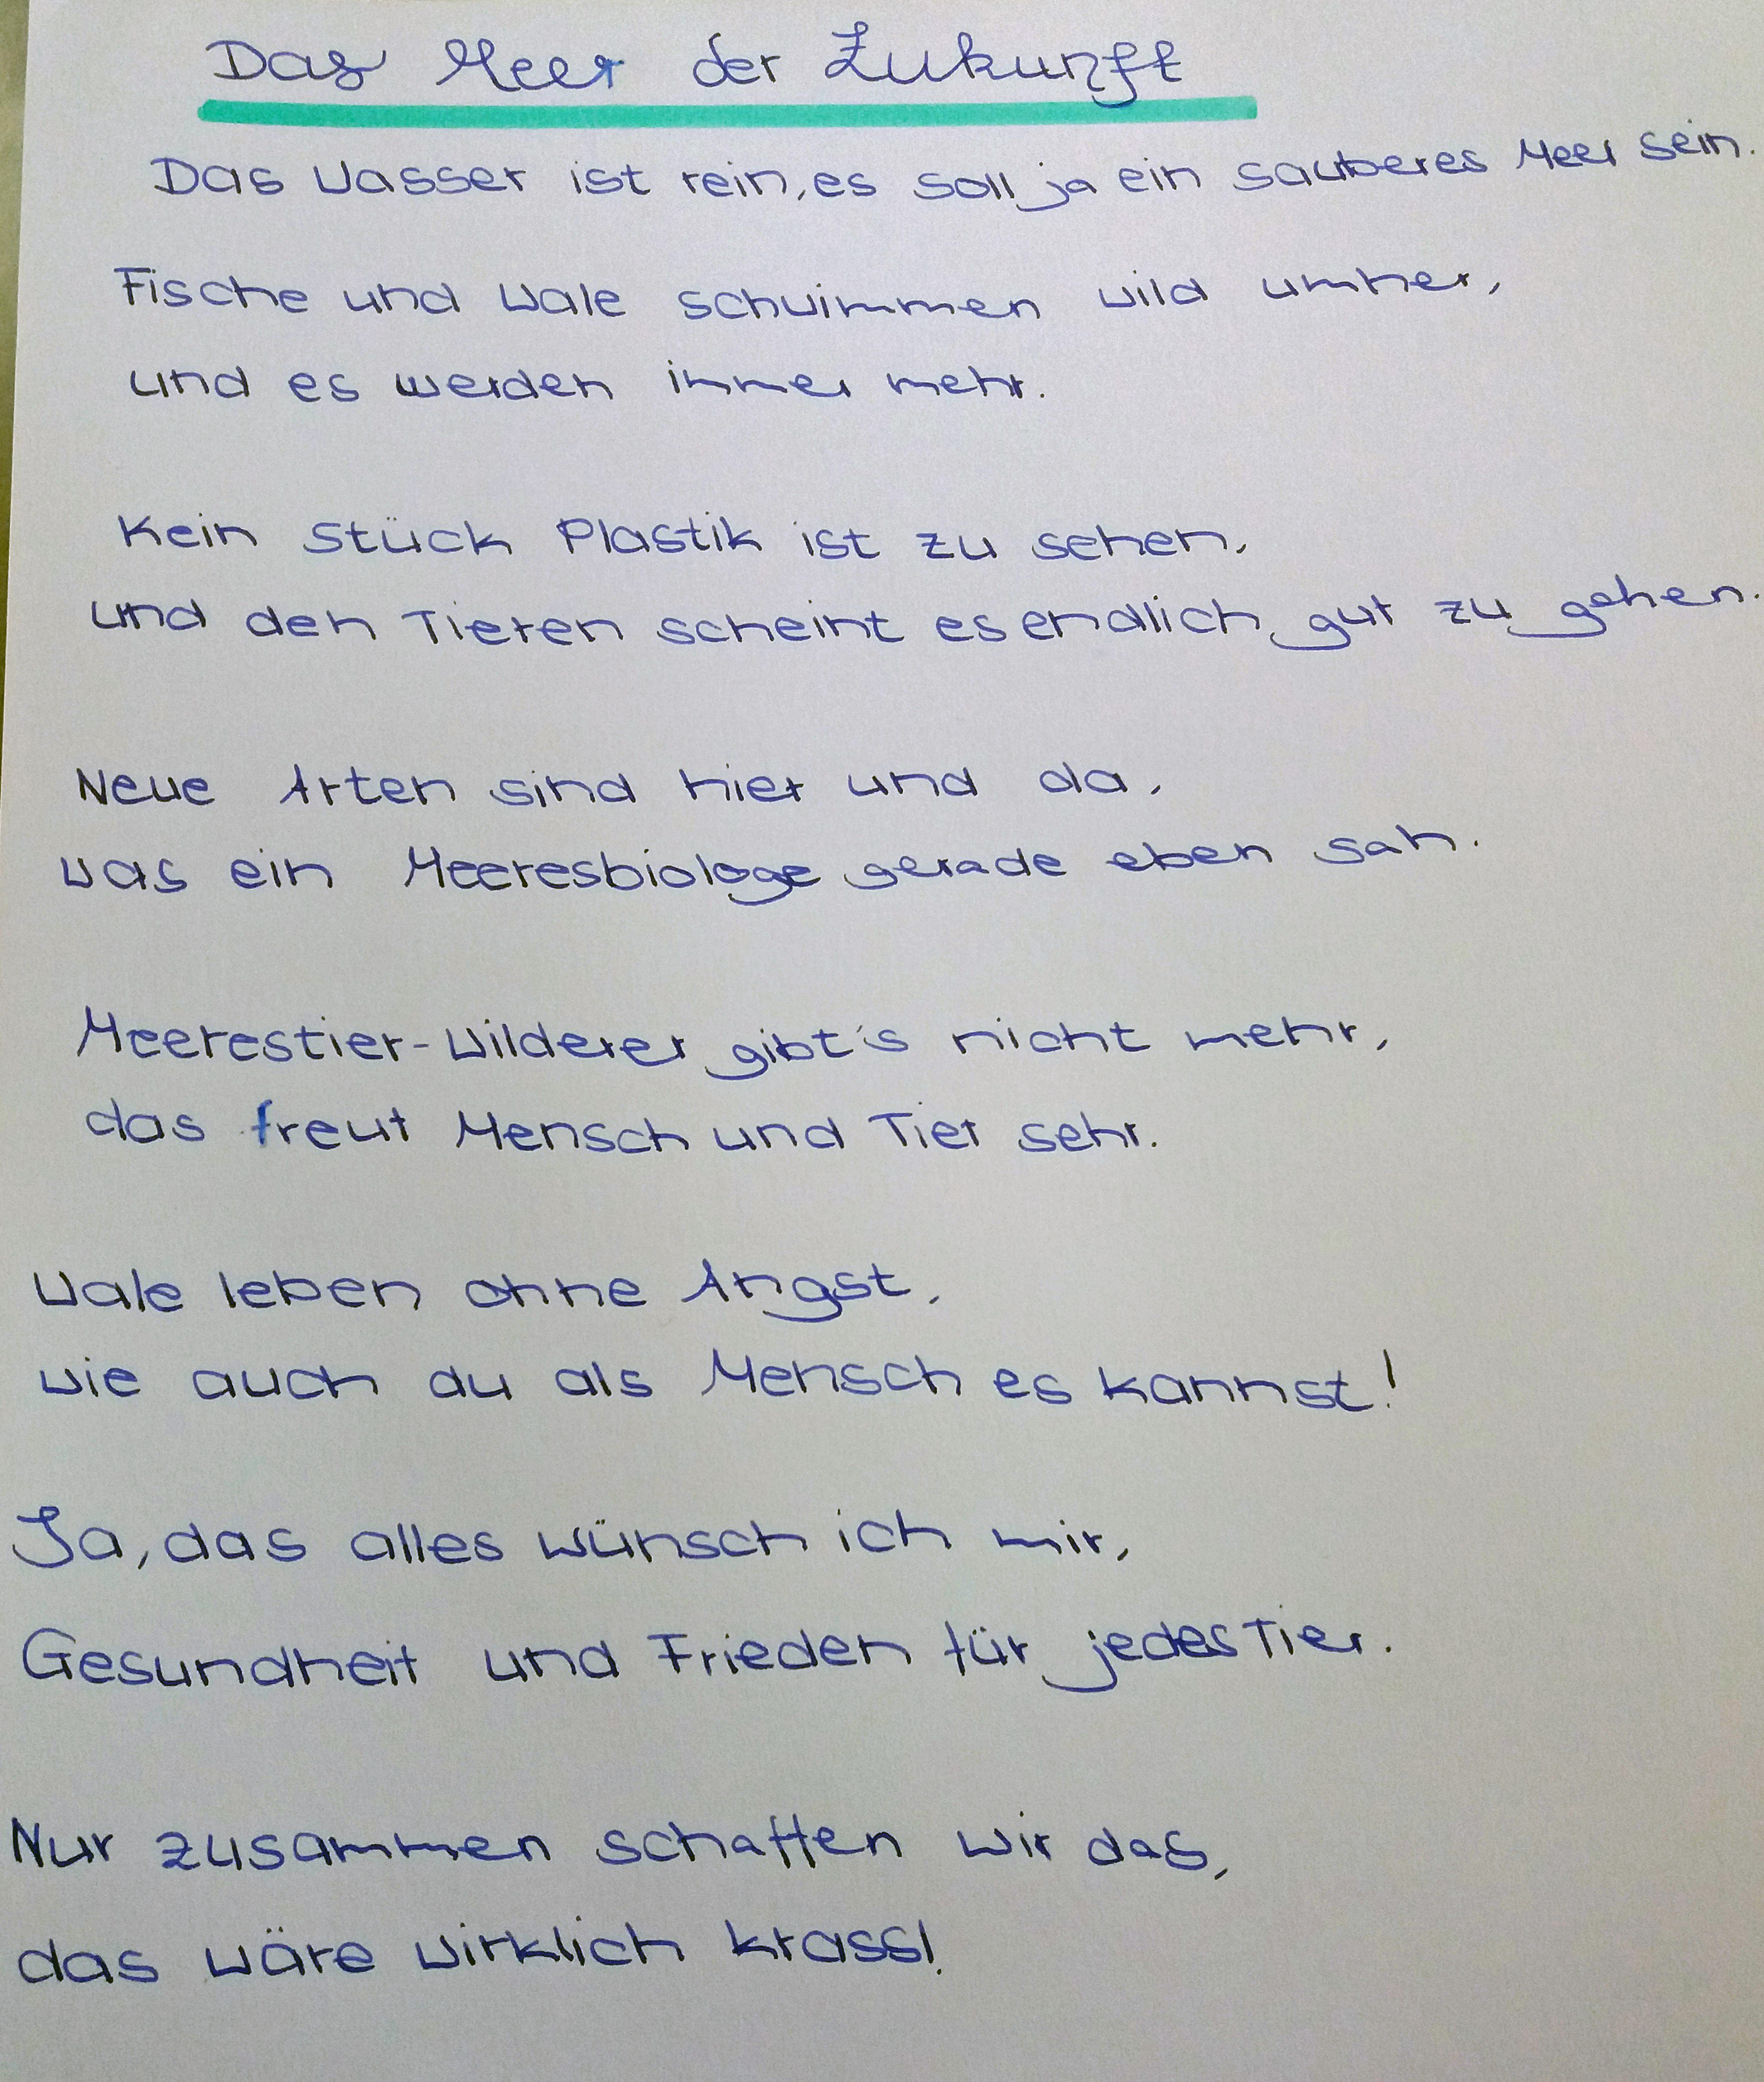 Das Meer der Zukunft
Das Wasser ist rein, es soll ja ein sauberes Meer sein.
Fische und Wale schwimmen wild umher,
und es werden immer mehr.
Kein Stück Plastik ist zu sehen,
und den Tieren scheint es endlich gut zu gehen.
Neue Arten sind hier und da,
was ein Meeresbiologe gerade eben sah.
Meerestier-Wilderer gibt's nicht mehr,
das freut Mensch und Tier sehr.
Wale leben ohne Angst,
wie auch du als Mensch es kannst!
Ja, das alles wünsch ich mir,
Gesundheit und Frieden für jedes Tier.
Nur zusammen schaffen wir das,
das wäre wirklich krass!